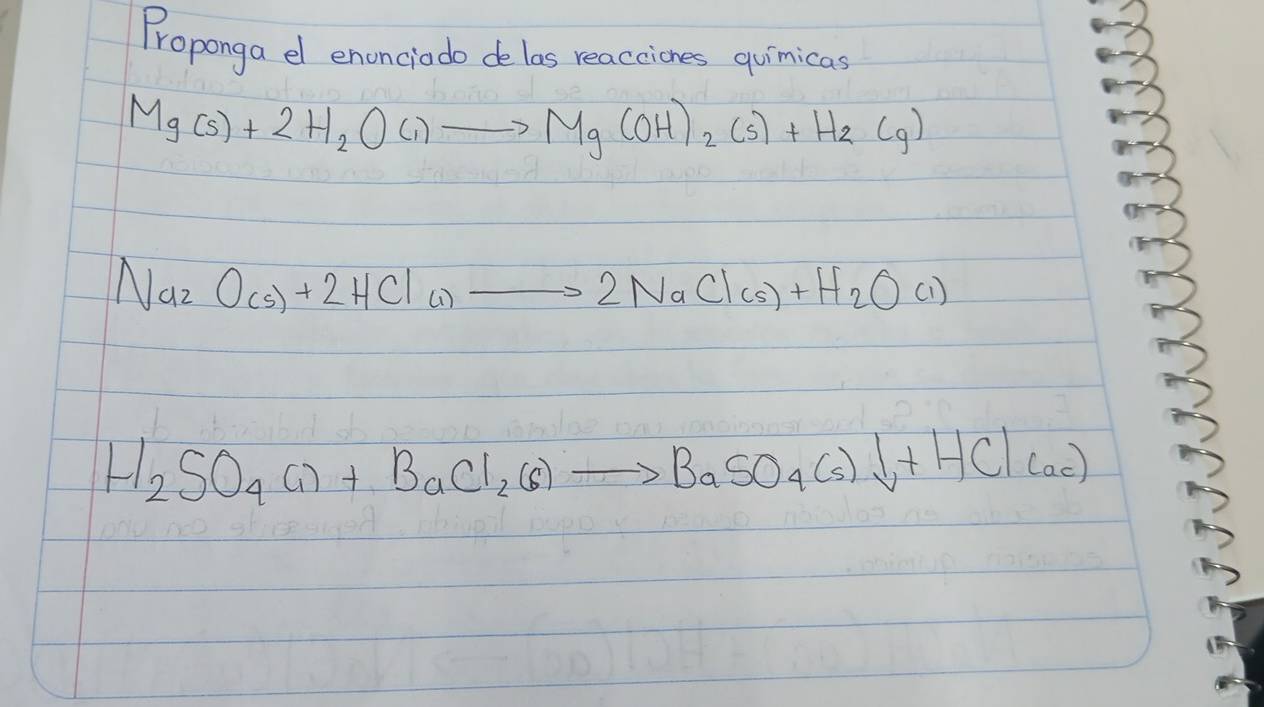 Proponga el enunciado de las reacciones químicas
Mg(s) + 2H₂O(l) ⟶ Mg(OH)₂(s) + H₂(g)
Na₂O(s) + 2HCl(l) ⟶ 2NaCl(s) + H₂O(l)
H₂SO₄(l) + BaCl₂(s) ⟶ BaSO₄(s)↓ + HCl(ac)